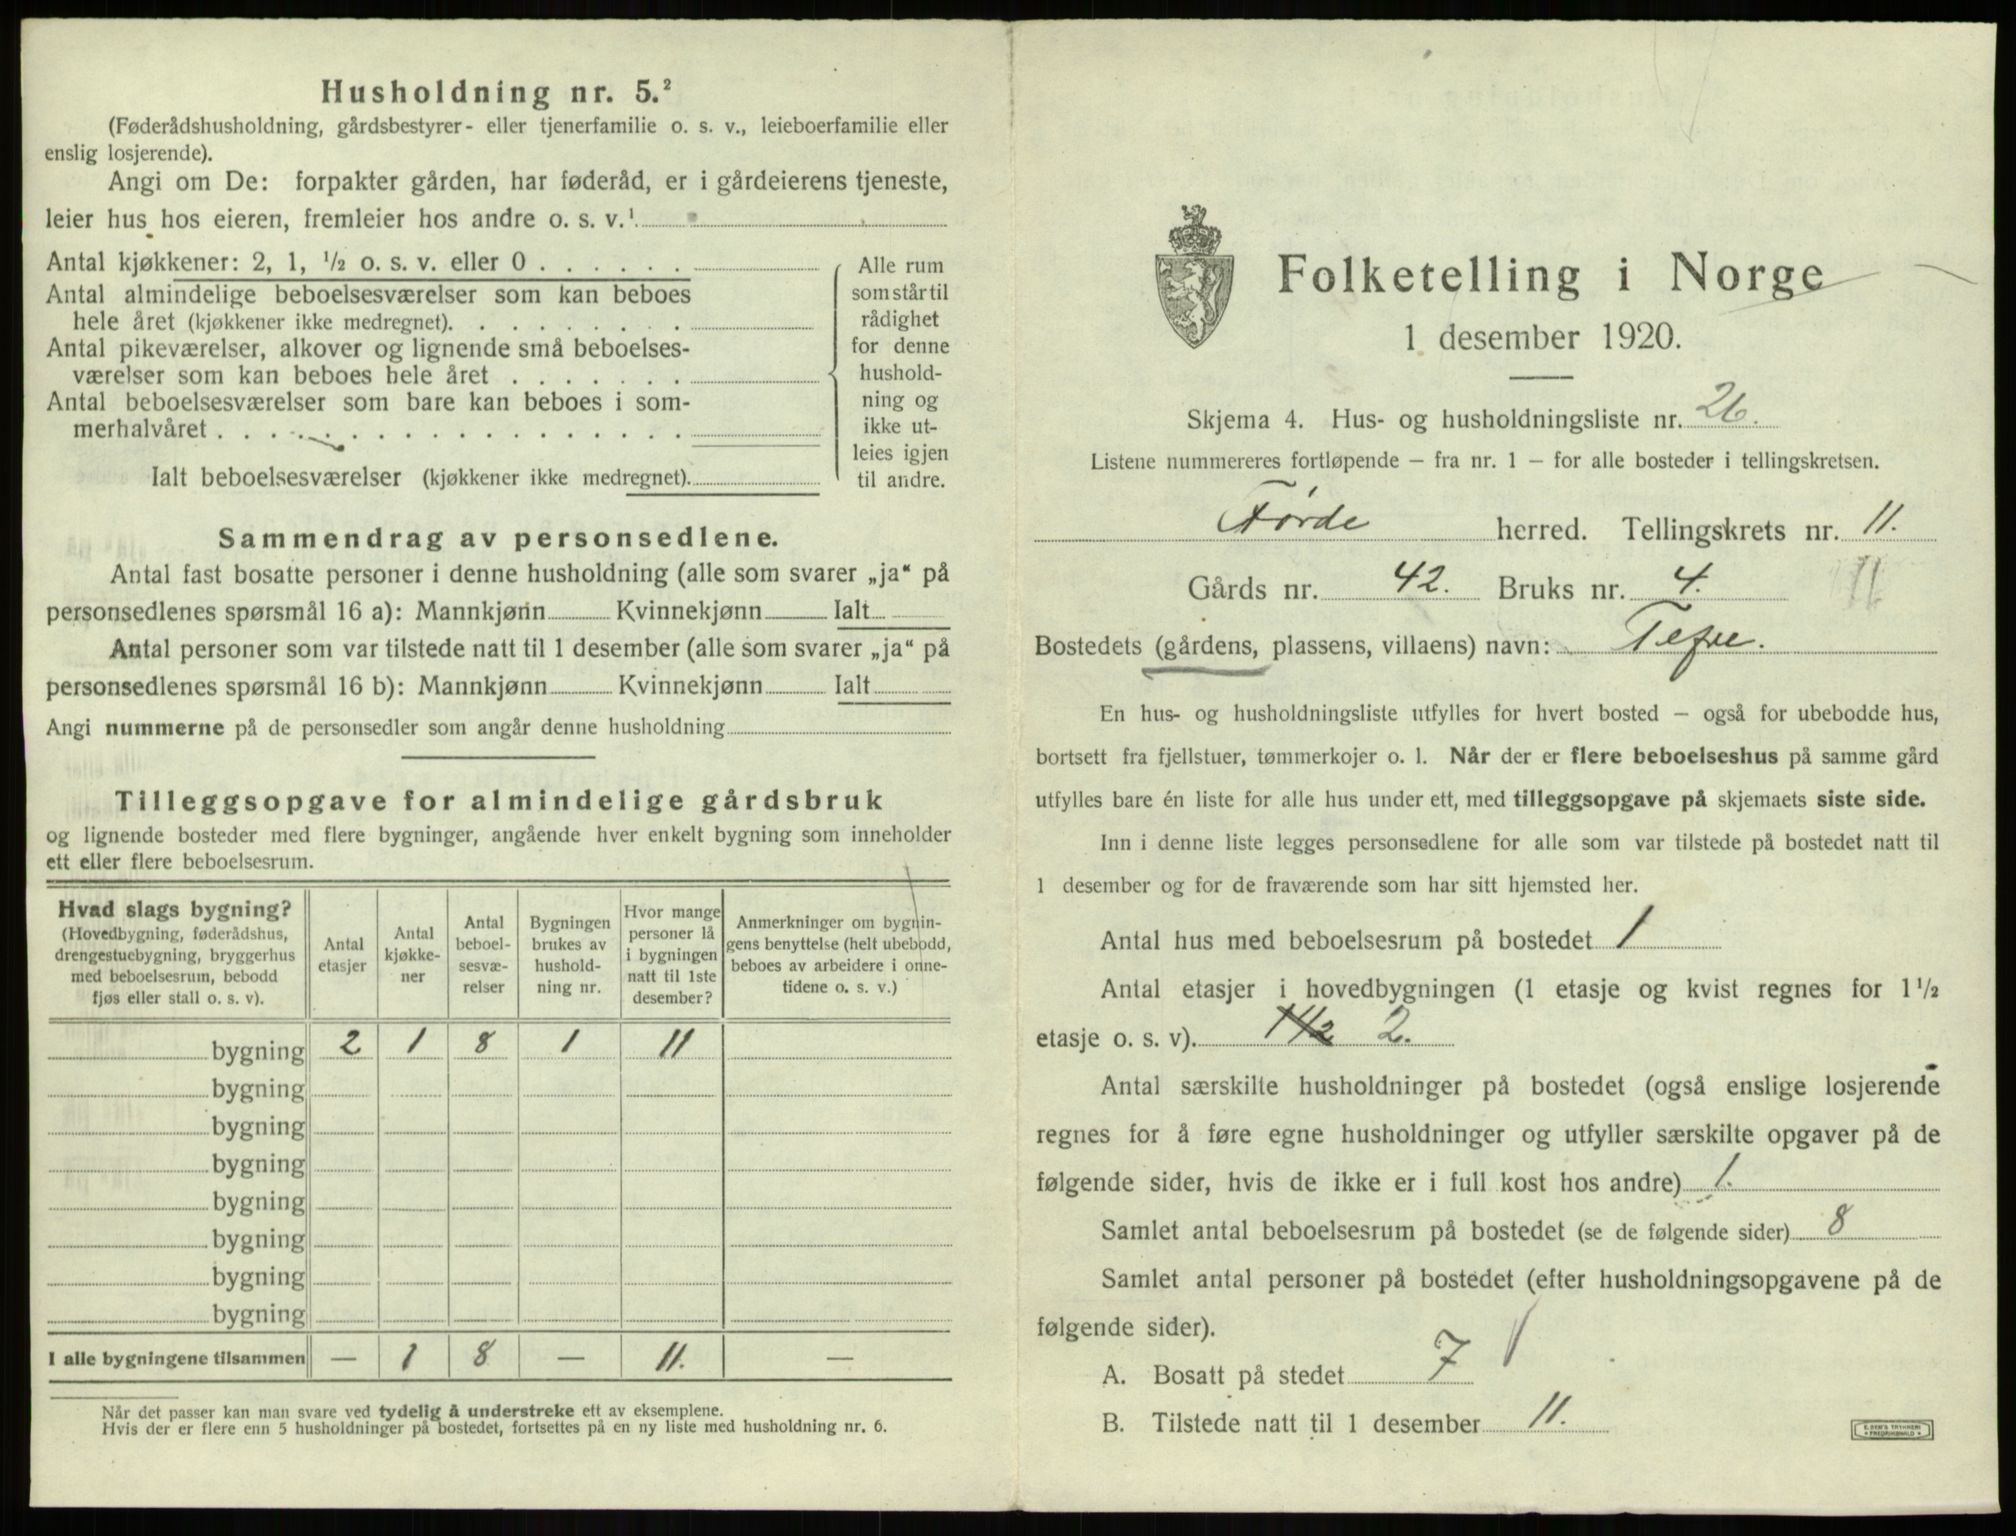 Husholdning nr. 5.²
(Føderådshusholdning, gårdsbestyrer- eller tjenerfamilie o. s. v., leieboerfamilie eller
enslig losjerende).
Angi om De: forpakter gården, har føderåd, er i gårdeierens tjeneste,
leier hus hos eieren, fremleier hos andre o. s. v.¹
Antal kjøkkener: 2, 1, ½ o. s. v. eller 0 . . . . . .
Antal almindelige beboelsesværelser som kan beboes
hele året (kjøkkener ikke medregnet). . . . . . . . .
Antal pikeværelser, alkover og lignende små beboelses-
værelser som kan beboes hele året . . . . . . .
Antal beboelsesværelser som bare kan beboes i som-
merhalvåret . . . . . . . . . . . . . . . . . .
Ialt beboelsesværelser (kjøkkener ikke medregnet).
Alle rum
som står til
rådighet
for denne
hushold-
ning og
ikke ut-
leies igjen
til andre.
Sammendrag av personsedlene.
Antal fast bosatte personer i denne husholdning (alle som svarer „ja“ på
personsedlenes spørsmål 16 a): Mannkjønn Kvinnekjønn Ialt
Antal personer som var tilstede natt til 1 desember (alle som svarer „ja“ på
personsedlenes spørsmål 16 b): Mannkjønn Kvinnekjønn Ialt
Angi nummerne på de personsedler som angår denne husholdning
Tilleggsopgave for almindelige gårdsbruk
og lignende bosteder med flere bygninger, angående hver enkelt bygning som inneholder
ett eller flere beboelsesrum.
Hvad slags bygning?
(Hovedbygning, føderådshus,
drengestuebygning, bryggerhus
med beboelsesrum, bebodd
fjøs eller stall o. s. v).
Antal
etasjer
Antal
kjøkke-
ner
Antal
beboel-
sesvæ-
relser
Bygningen
brukes av
hushold-
ning nr.
Hvor mange
personer lå
i bygningen
natt til 1ste
desember?
Anmerkninger om bygnin-
gens benyttelse (helt ubebodd,
beboes av arbeidere i onne-
tidene o. s. v.)
bygning 2 1 8 1 11
bygning
bygning
bygning
bygning
bygning
bygning
bygning
I alle bygningene tilsammen — 1 8 — 11. —
Når det passer kan man svare ved tydelig å understreke ett av eksemplene.
Hvis der er flere enn 5 husholdninger på bostedet, fortsettes på en ny liste med husholdning nr. 6.
Folketelling i Norge
1 desember 1920.
Skjema 4. Hus- og husholdningsliste nr. 26.
Listene nummereres fortløpende — fra nr. 1 — for alle bosteder i tellingskretsen.
Førde herred. Tellingskrets nr. 11.
Gårds nr. 42. Bruks nr. 4. 11
Bostedets (gårdens, plassens, villaens) navn: Tefre.
En hus- og husholdningsliste utfylles for hvert bosted — også for ubebodde hus,
bortsett fra fjellstuer, tømmerkojer o. l. Når der er flere beboelseshus på samme gård
utfylles bare én liste for alle hus under ett, med tilleggsopgave på skjemaets siste side.
Inn i denne liste legges personsedlene for alle som var tilstede på bostedet natt til
1 desember og for de fraværende som har sitt hjemsted her.
Antal hus med beboelsesrum på bostedet 1
Antal etasjer i hovedbygningen (1 etasje og kvist regnes for 1½
etasje o. s. v). 1 1/2 2.
Antal særskilte husholdninger på bostedet (også enslige losjerende
regnes for å føre egne husholdninger og utfyller særskilte opgaver på de
følgende sider, hvis de ikke er i full kost hos andre) 1.
Samlet antal beboelsesrum på bostedet (se de følgende sider) 8
Samlet antal personer på bostedet (efter husholdningsopgavene på de
følgende sider).
A. Bosatt på stedet 7
B. Tilstede natt til 1 desember 11.